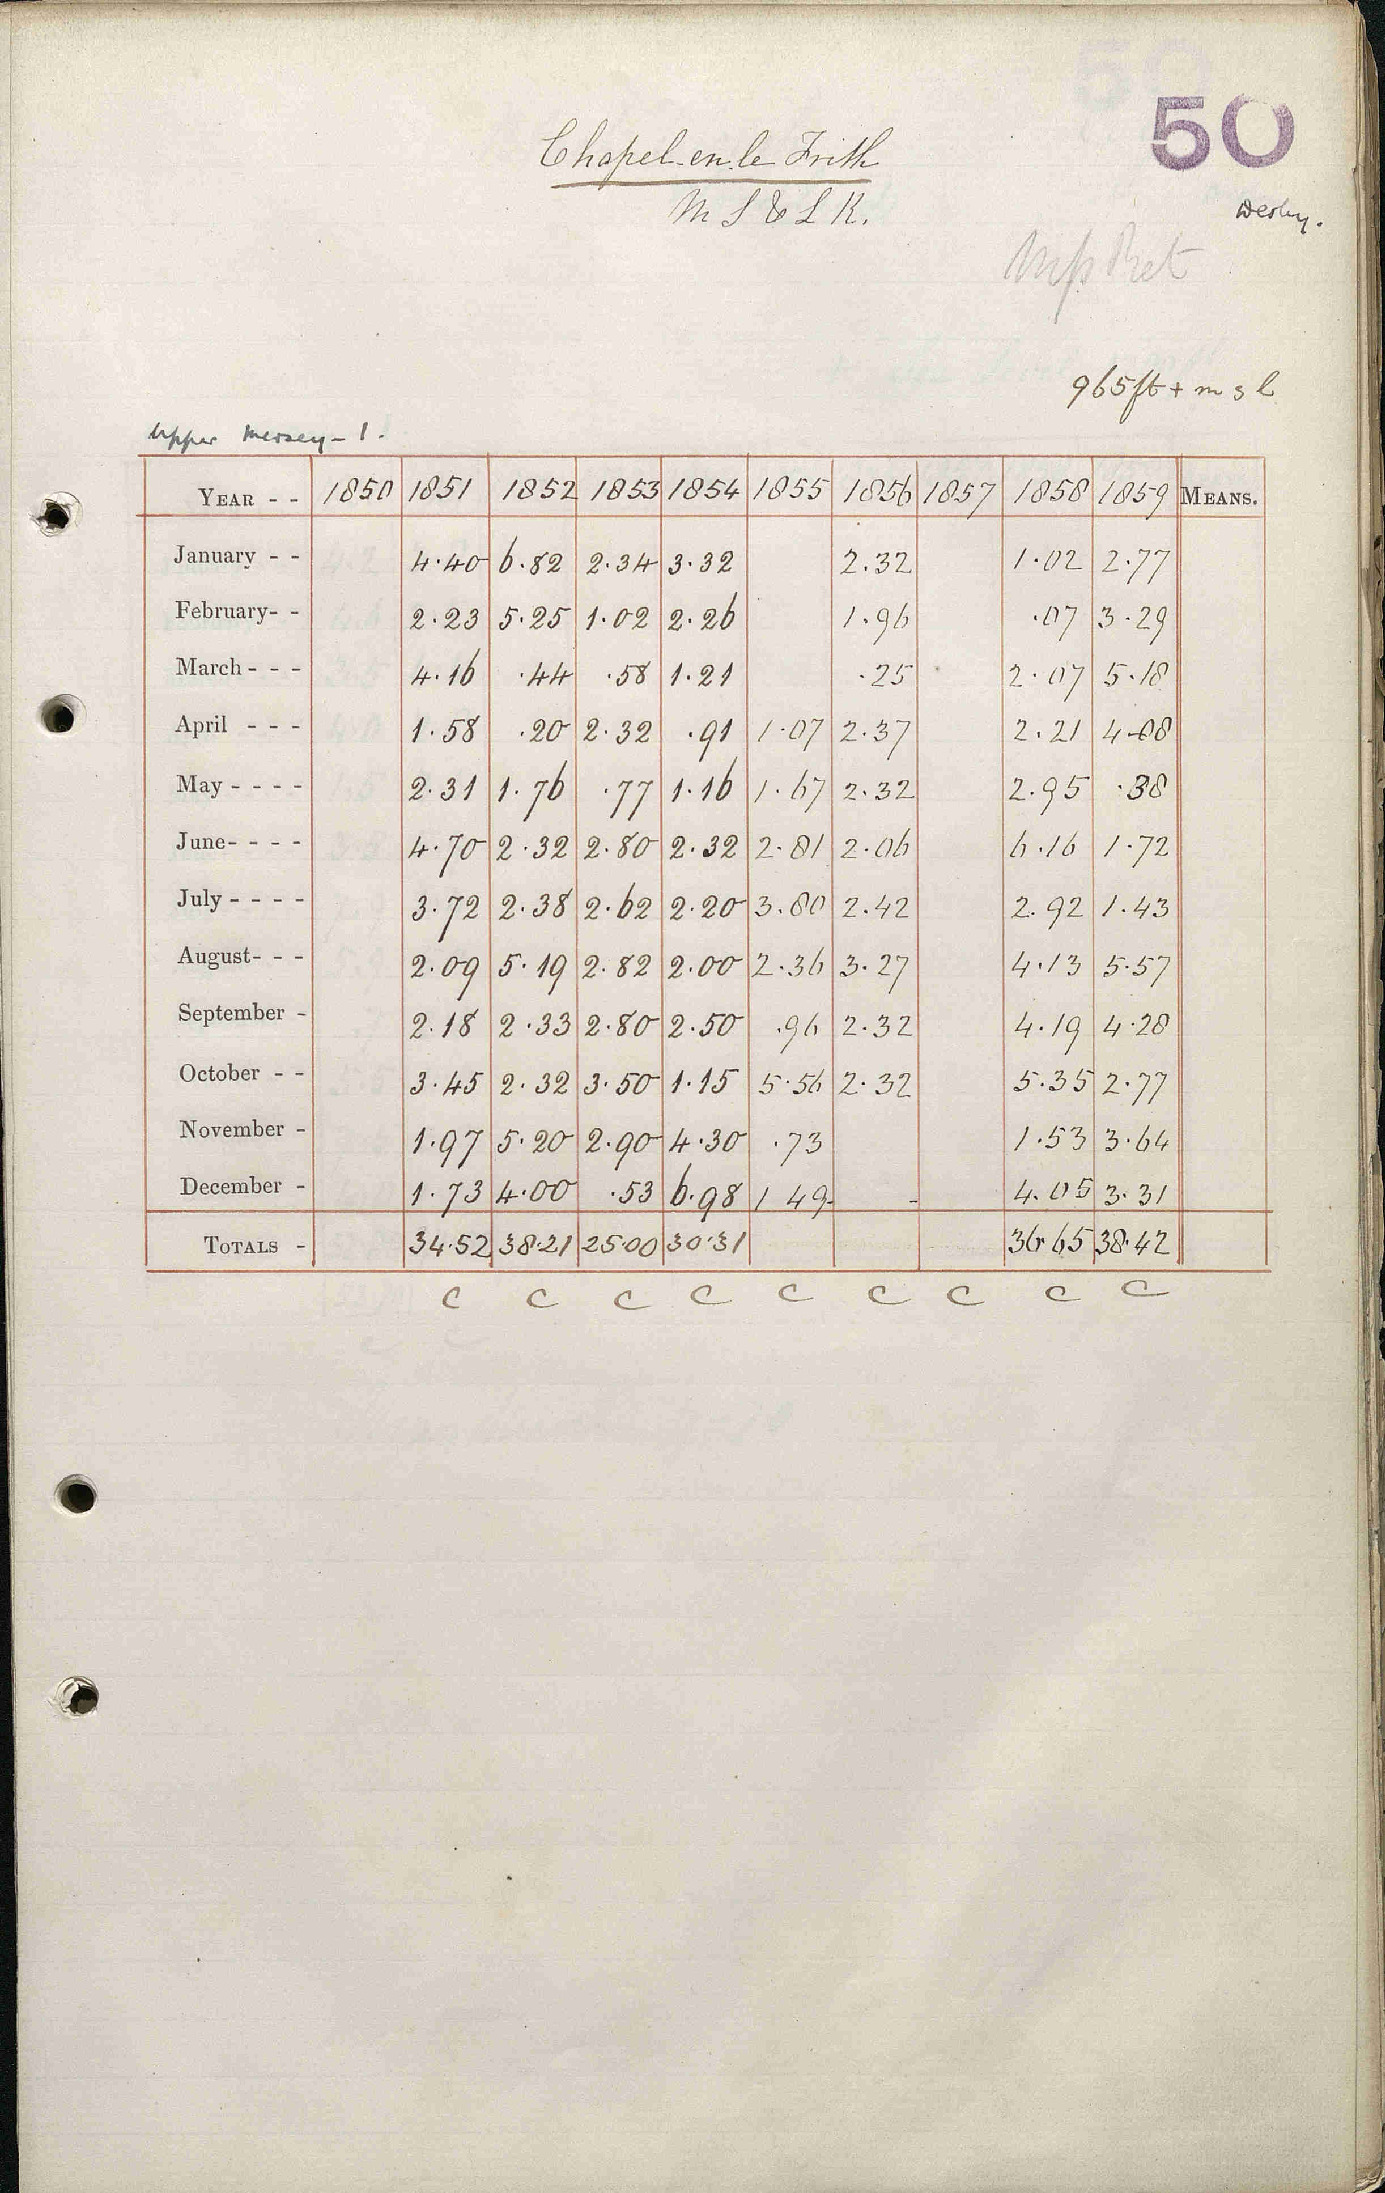 50
Chapel-en-le Frith
M S & L R.
Derby.
965ft + m s l
Upper Mersey - 1.
YEAR - - 1850 1851 1852 1853 1854 1855 1856 1857 1858 1859 MEANS.
January - - 4.40 6.82 2.34 3.32 2.32 1.02 2.77
February - - 2.23 5.25 1.02 2.26 1.96 .07 3.29
March - - - 4.16 .44 .58 1.21 .25 2.07 5.18
April - - - 1.58 .20 2.32 .91 1.07 2.37 2.21 4.08
May - - - - 2.31 1.76 .77 1.16 1.67 2.32 2.95 .38
June - - - - 4.70 2.32 2.80 2.32 2.81 2.06 6.16 1.72
July - - - - 3.72 2.38 2.62 2.20 3.80 2.42 2.92 1.43
August - - - 2.09 5.19 2.82 2.00 2.36 3.27 4.13 5.57
September - 2.18 2.33 2.80 2.50 .96 2.32 4.19 4.28
October - - 3.45 2.32 3.50 1.15 5.56 2.32 5.35 2.77
November - 1.97 5.20 2.90 4.30 .73 1.53 3.64
December - 1.73 4.00 .53 6.98 1 49 - - 4.05 3.31
TOTALS - 34.52 38.21 25.00 30.31 36.65 38.42
C C C C C C C C C